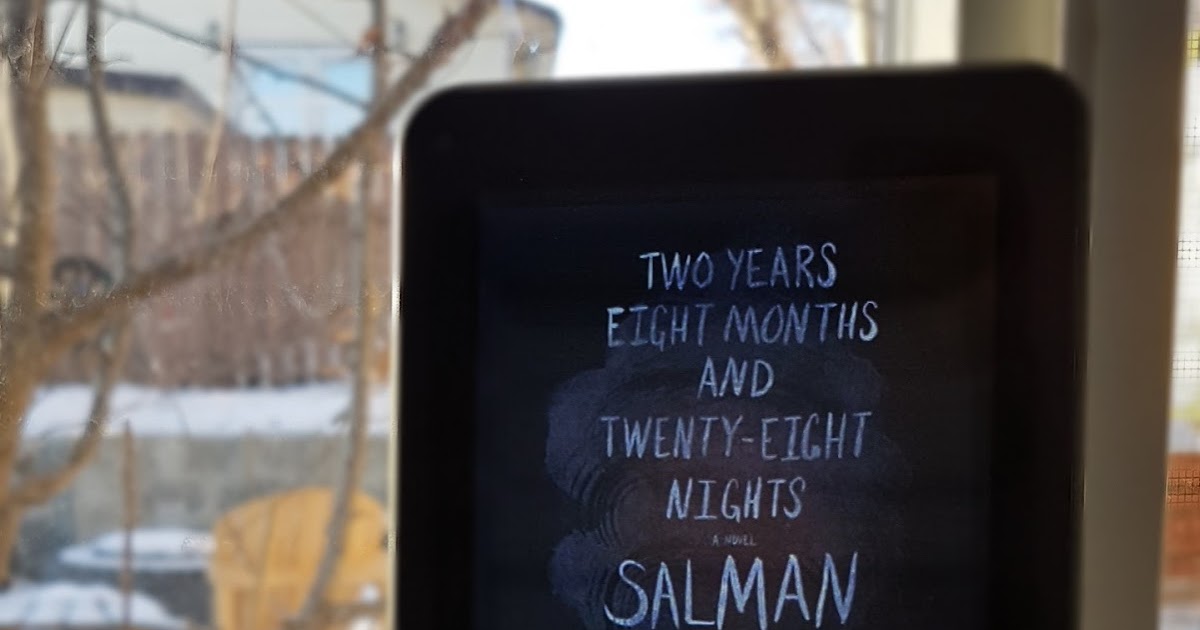 TWO YEARS
EIGHT MONTHS
AND
TWENTY-EIGHT
NIGHTS
A NOVEL
SALMAN